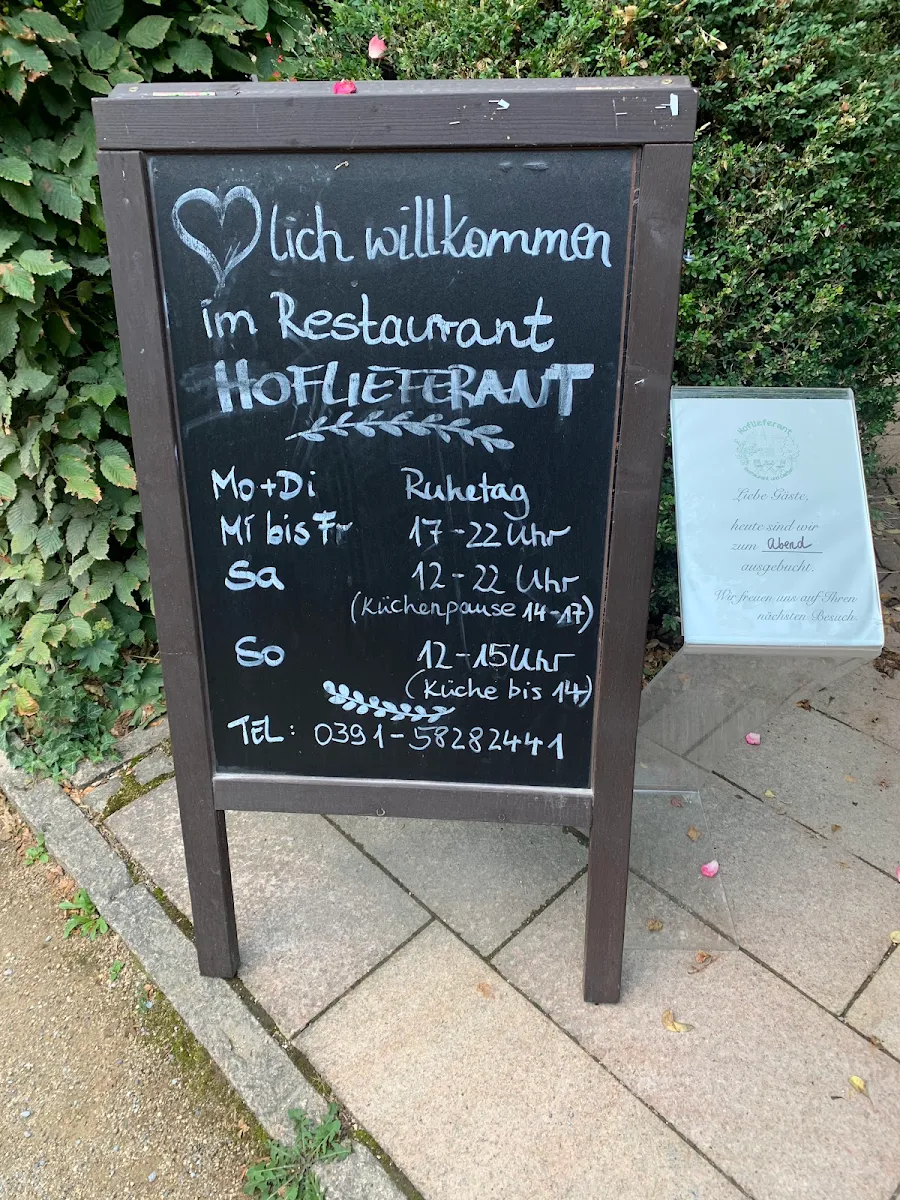 lich willkommen
im Restaurant
HOFLIEFERANT
Mo+Di Ruhetag
Mi bis Fr 17-22 Uhr
Sa 12-22 Uhr
(Küchenpause 14-17)
So 12-15 Uhr
(Küche bis 14)
TEL: 0391-58282441
Hoflieferant
Liebe Gäste,
heute sind wir
zum Abend
ausgebucht.
Wir freuen uns auf Ihren
nächsten Besuch.